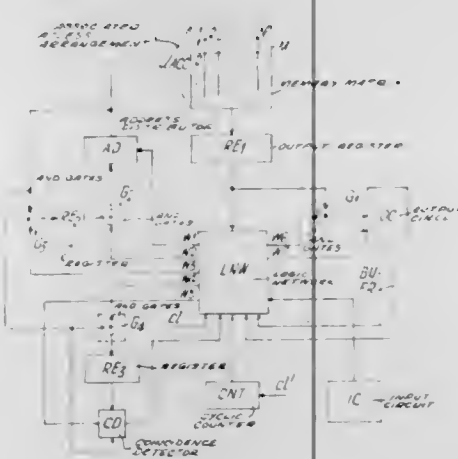 ASSOCIATED
ACCESS
ARRANGEMENT
JACC
M
MEMORY MATR
ADDRESS
DISTRIBUTOR
AD
RE1
OUTPUT REGISTER
AND GATES
G2
AND
GATES
G3
REGISTER
G1
OC
OUTPUT
CIRCUIT
LNW
LOGIC
NETWORK
AND GATES
G4
Cl
RE3
REGISTER
CNT
Cl'
CYCLIC
COUNTER
IC
INPUT
CIRCUIT
CD
COINCIDENCE
DETECTOR